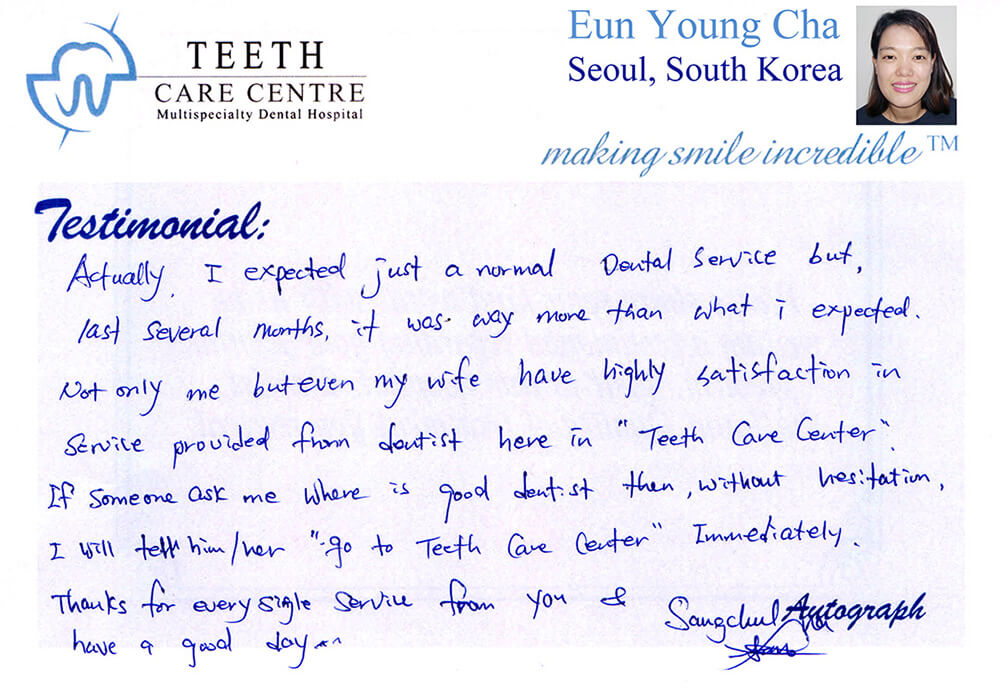 TEETH
CARE CENTRE
Multispecialty Dental Hospital
Eun Young Cha
Seoul, South Korea
making smile incredible™
Testimonial:
Actually, I expected just a normal Dental Service but,
last several months, it was way more than what i expected.
Not only me but even my wife have highly satisfaction in
service provided from dentist here in "Teeth Care Center".
If someone ask me where is good dentist then, without hesitation,
I will tell him/her "go to Teeth Care Center" Immediately.
Thanks for every single service from you &
have a good day
Sangchul
Autograph